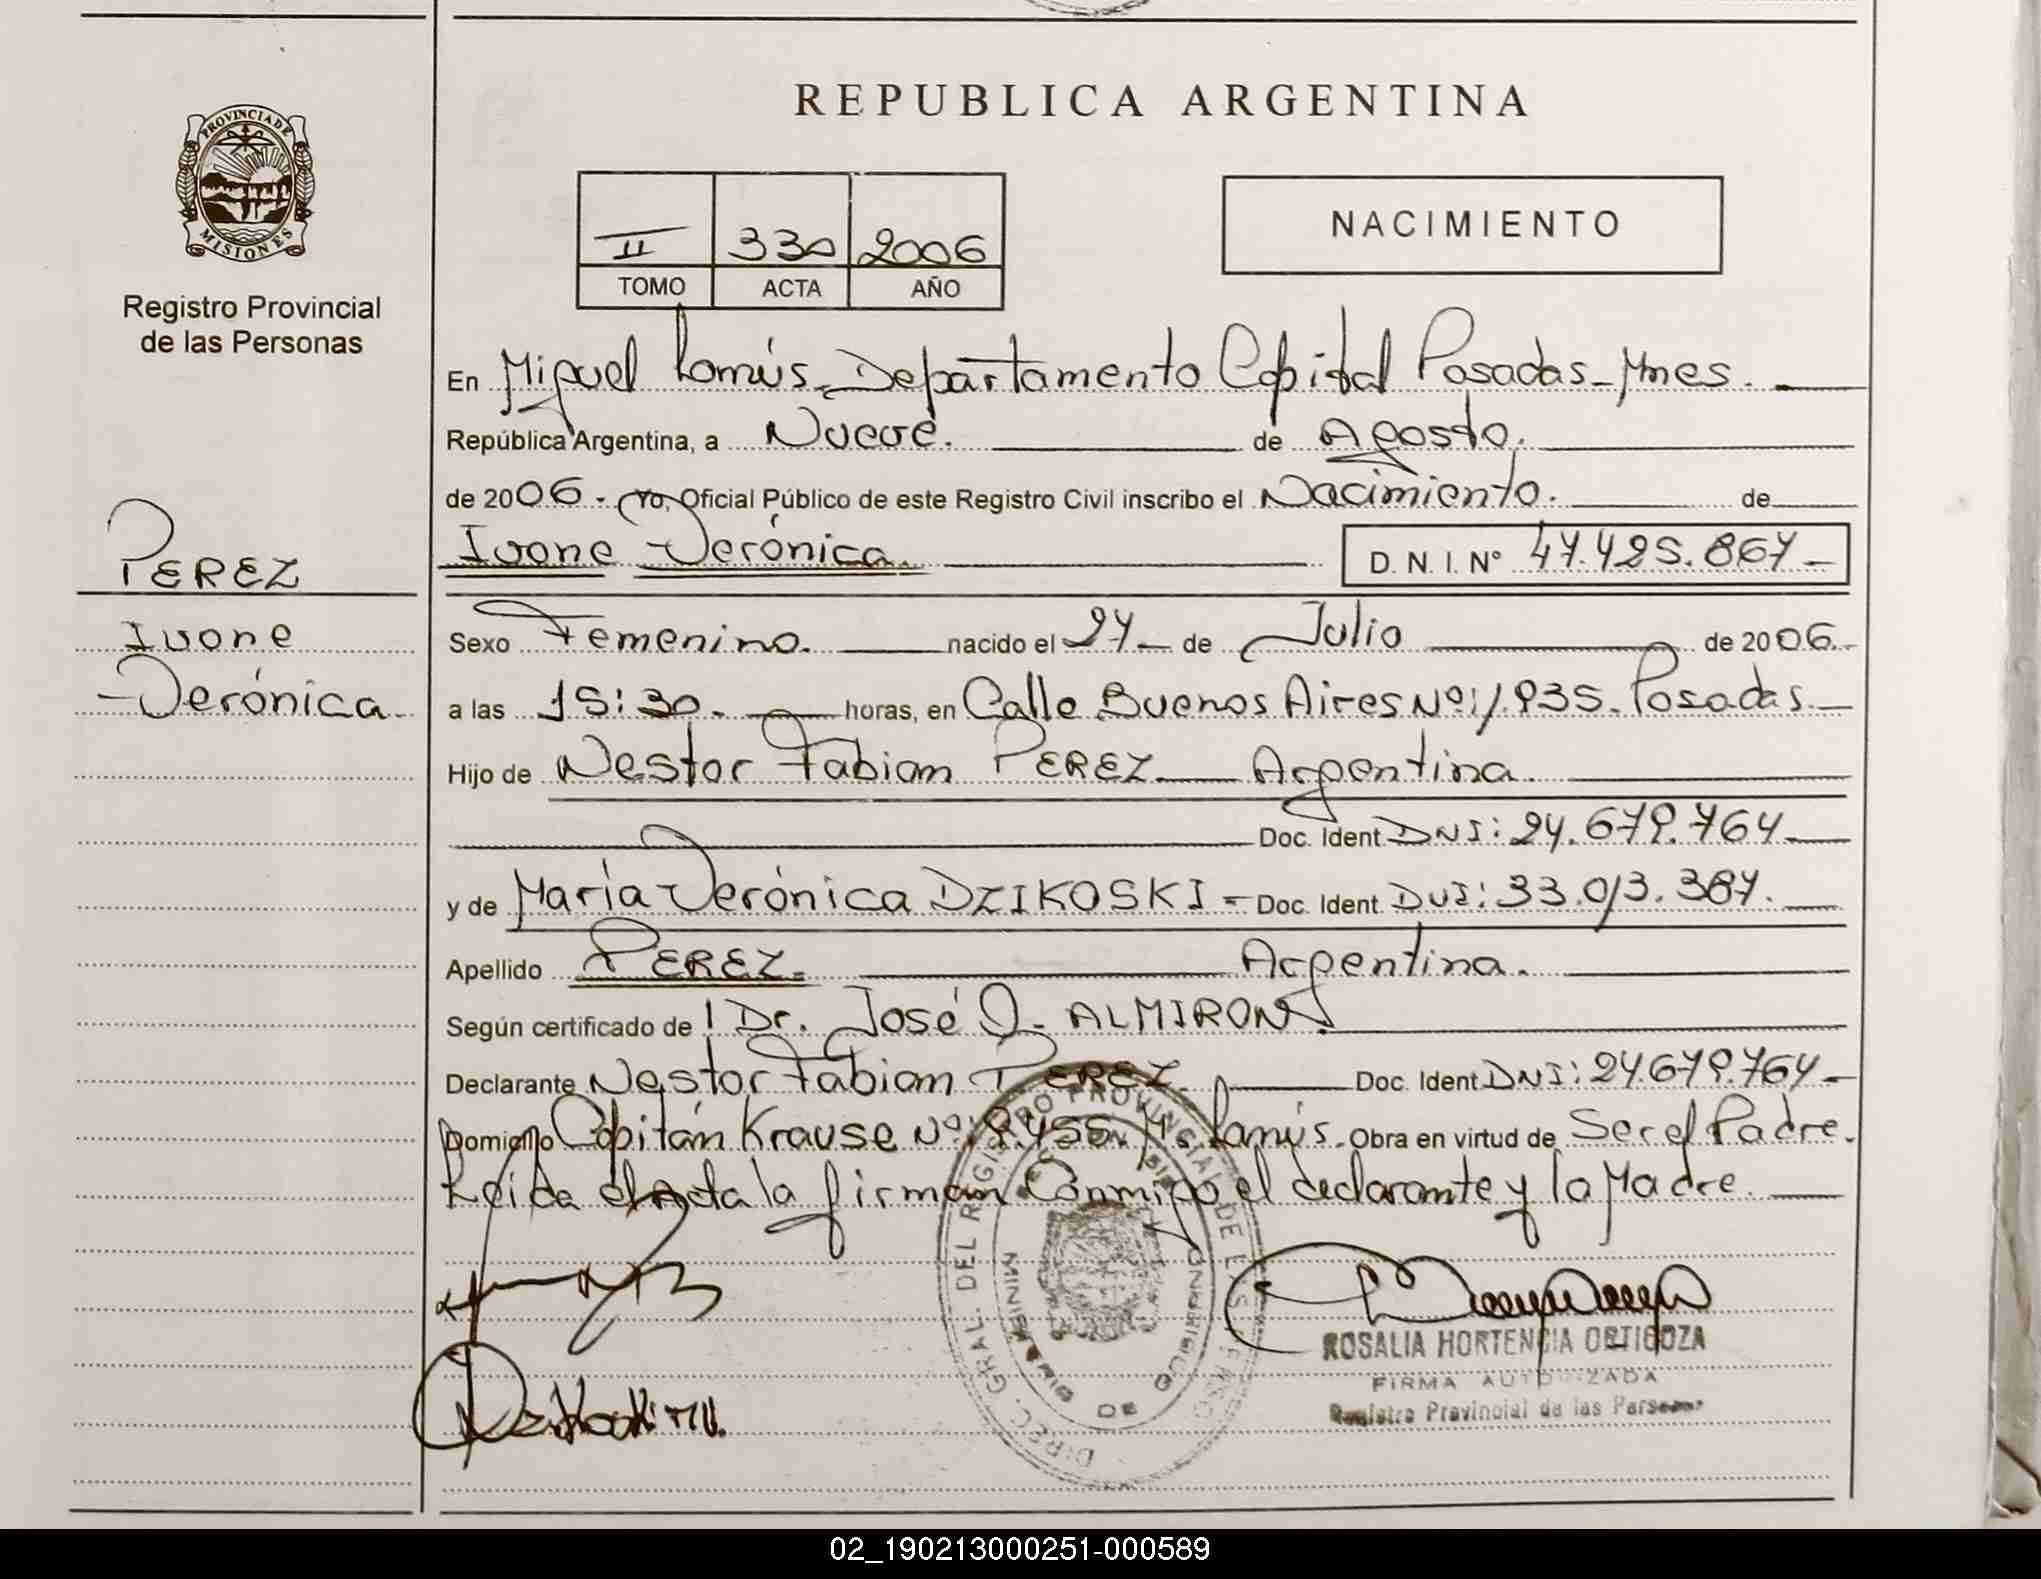 REPUBLICA ARGENTINA
PROVINCIA DE
MISIONES
Registro Provincial
de las Personas
II 330 2006
TOMO ACTA AÑO
NACIMIENTO
En Miguel Lanús - Departamento Capital Posadas - Mnes.
República Argentina, a Nueve. de Agosto.
de 2006. - Yo, Oficial Público de este Registro Civil inscribo el Nacimiento. de
Ivone Verónica. D. N. I. Nº 47.425.867 -
PEREZ
Ivone
Verónica
Sexo Femenino. nacido el 27 - de Julio de 2006. -
a las 15:30. horas, en Calle Buenos Aires Nº: 1.935. Posadas. -
Hijo de Nestor Fabian PEREZ Argentina.
Doc. Ident. DNI: 24.679.764 -
y de María Verónica DZIKOSKI - Doc. Ident. DNI: 33.013.387.
Apellido PEREZ. Argentina.
Según certificado de l Dr. José O. ALMIRON
Declarante Nestor Fabian PEREZ. Doc. Ident. DNI: 24.679.764 -
Domicilio Capitán Krause Nº: M. Lanús. Obra en virtud de Ser el Padre.
Leida el Acta la firman Conmigo el declarante y la Madre.
DIREC. GRAL. DEL REGISTRO PROVINCIAL DE LAS PERSONAS
ROSALIA HORTENCIA ORTIGOZA
FIRMA AUTORIZADA
Registro Provincial de las Personas
Dzikoski M V.
02_190213000251-000589